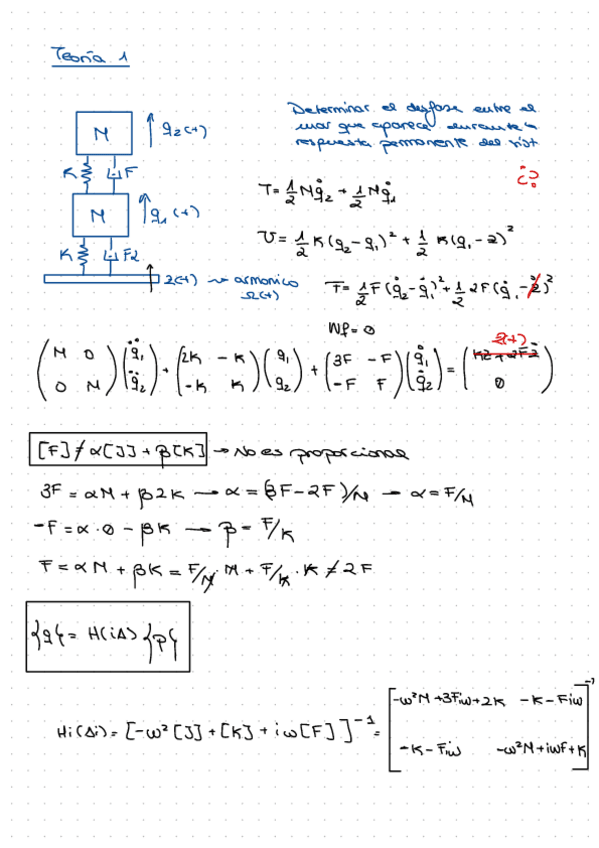 Teoría 1
Determinar el desfase entre el
mar que aparece durante la
respuesta permanente del sist
¿?
M
q₂(t)
K
F
M
q₁(t)
K
F2
z(t) → armonico
Ω(t)
T = 1/2 M q̇₂ + 1/2 M q̇₁
U = 1/2 K (q₂ - q₁)² + 1/2 K (q₁ - z)²
F = 1/2 F (q̇₂ - q̇₁)² + 1/2 2F (q̇₁ - ż)²
Wf = 0
(M 0; 0 M) (q̈₁; q̈₂) + (2K -K; -K K) (q₁; q₂) + (3F -F; -F F) (q̇₁; q̇₂) = (Kz + 2Fż; 0)
[F] ≠ α[J] + β[K] → No es proporcional
3F = αM + β2K → α = (3F - 2F)/M → α = F/M
-F = α · 0 - βK → β = F/K
F = αM + βK = F/M · M + F/K · K ≠ 2F
{q} = H(iΔ) {p}
Hi(Δi) = [-ω²[J] + [K] + iω[F]]⁻¹ = [-ω²M + 3Fiω + 2K -K - Fiω; -K - Fiω -ω²M + iωF + K]⁻¹